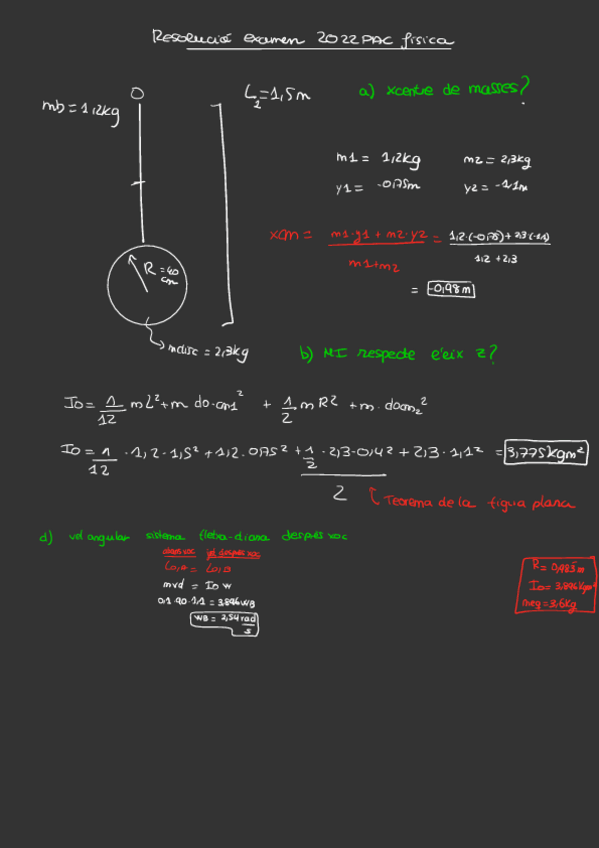 Resolució examen 2022 PAC física
O
mb = 1,2kg
L2=1,5m
a) xcentre de masses?
m1 = 1,2kg m2 = 2,3kg
y1 = -0,75m y2 = -1,1m
xcm = m1·y1 + m2·y2 / m1+m2 = 1,2·(-0,75)+2,3·(-1,1) / 1,2+2,3
= -0,98m
R=40 cm
mdisc = 2,3kg
b) MI respecte l'eix z?
Io = 1/12 mL² + m do-cm1² + 1/2 m R² + m·docm2²
Io = 1/12 · 1,2·1,5² + 1,2·0,75² + 1/2 · 2,3·0,4² + 2,3·1,1² = 3,775kgm²
2
Teorema de la figura plana
d) vel angular sistema fletxa-diana després xoc
abans xoc just després xoc
Lo,A = Lo,B
mvd = Io w
0,1·90·1,1 = 3,896wB
wB = 2,54 rad/s
R = 0,985m
Io = 3,896kgm²
meq = 3,6kg